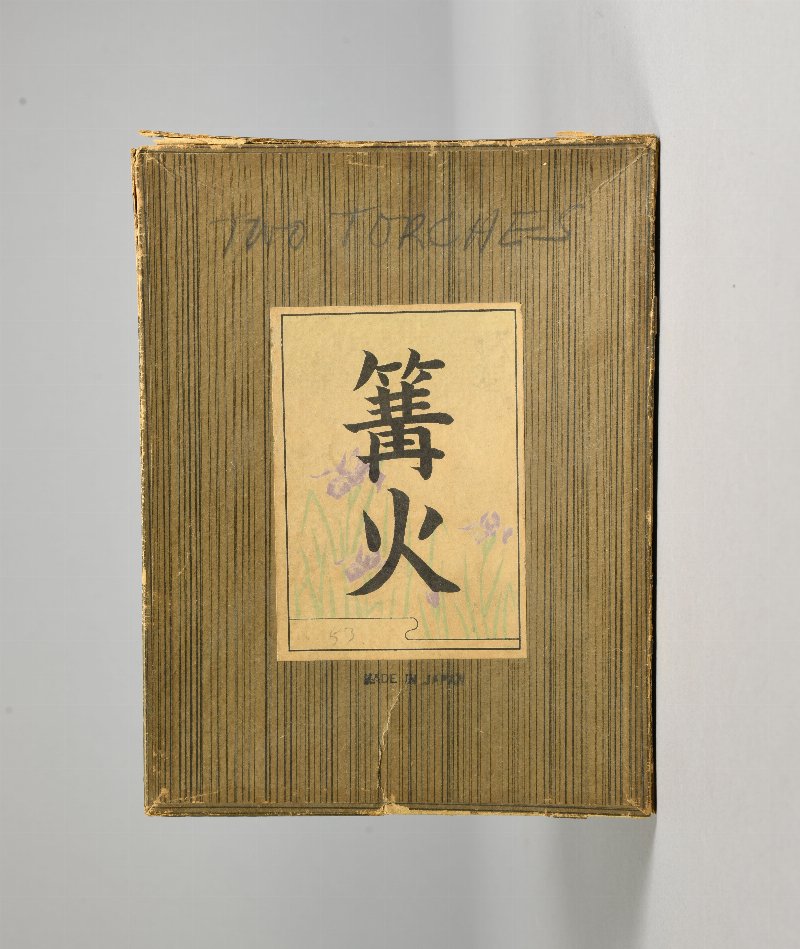 TWO TORCHES
篝火
53
MADE IN JAPAN